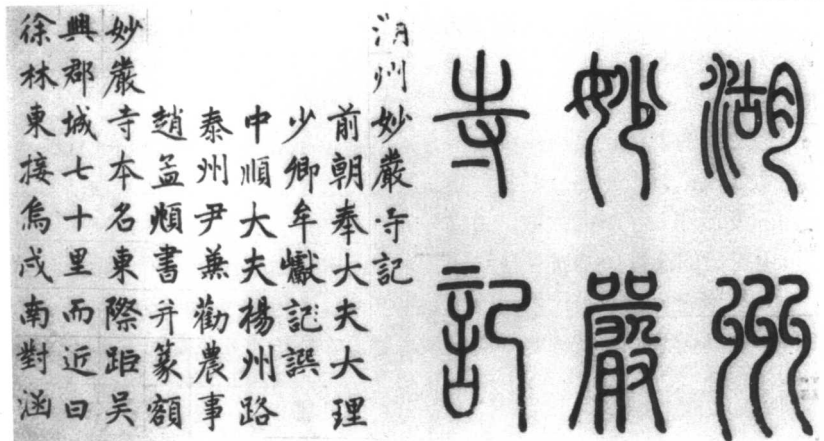 湖州
妙嚴
寺記
湖州妙嚴寺記
前朝奉大夫大理
少卿牟巘記譔
中順大夫楊州路
泰州尹兼勸農事
趙孟頫書并篆額
妙嚴寺本名東際距吳
興郡城七十里而近曰
徐林東接烏戍南對涵